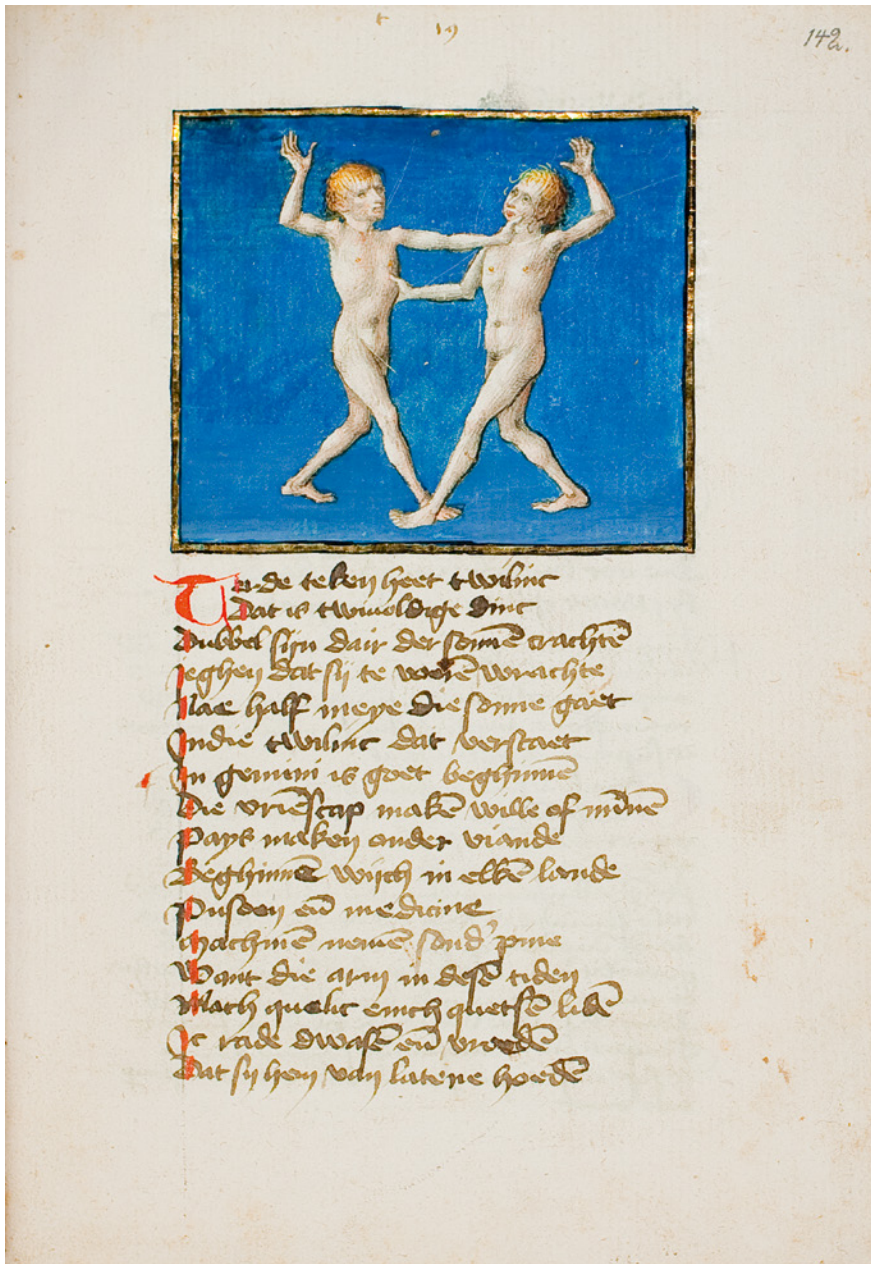 142.
Tder de teken heet twilinc
Dat is twiuoldige dinc
Dubbel sijn dair der sonnē crachtē
Jeghen dat sij te worē wrachte
Nae half meye die sonne gaet
In die twilinc dat verstaet
In gemini is goet beghinnē
Die vriēscap makē wille of mīnē
Pays maken onder viande
Beghinnē wijch in elkē lande
Pusoen eñ medicine
Machmē nemē sond' pine
Want die arm in desē tiden
Mach qualic enich quetsē lidē
Ic rade dwasē eñ vroedē
Dat sij hem van latene hoedē